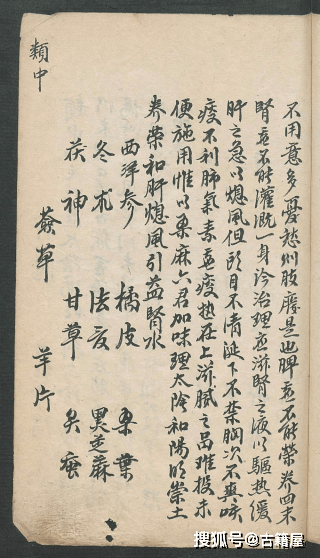 不用意多憂愁則肢廢是也脾意不能榮养四末
腎意不能灌溉一身診治理宜滋腎之液以驅热緩
肝之急以熄風但頭目不清涎下不禁胸次不爽咳
痰不利肺氣素虛痰热在上滋膩之品难投未
便施用惟以桑麻六君加味理太陰和陽明崇土
养榮和肝熄風引益腎水
西洋參 橘皮 桑葉
冬朮 法夏 黑芝蔴
茯神 甘草 天蚕
薟草 羊片
類中
搜狐号@古籍屋